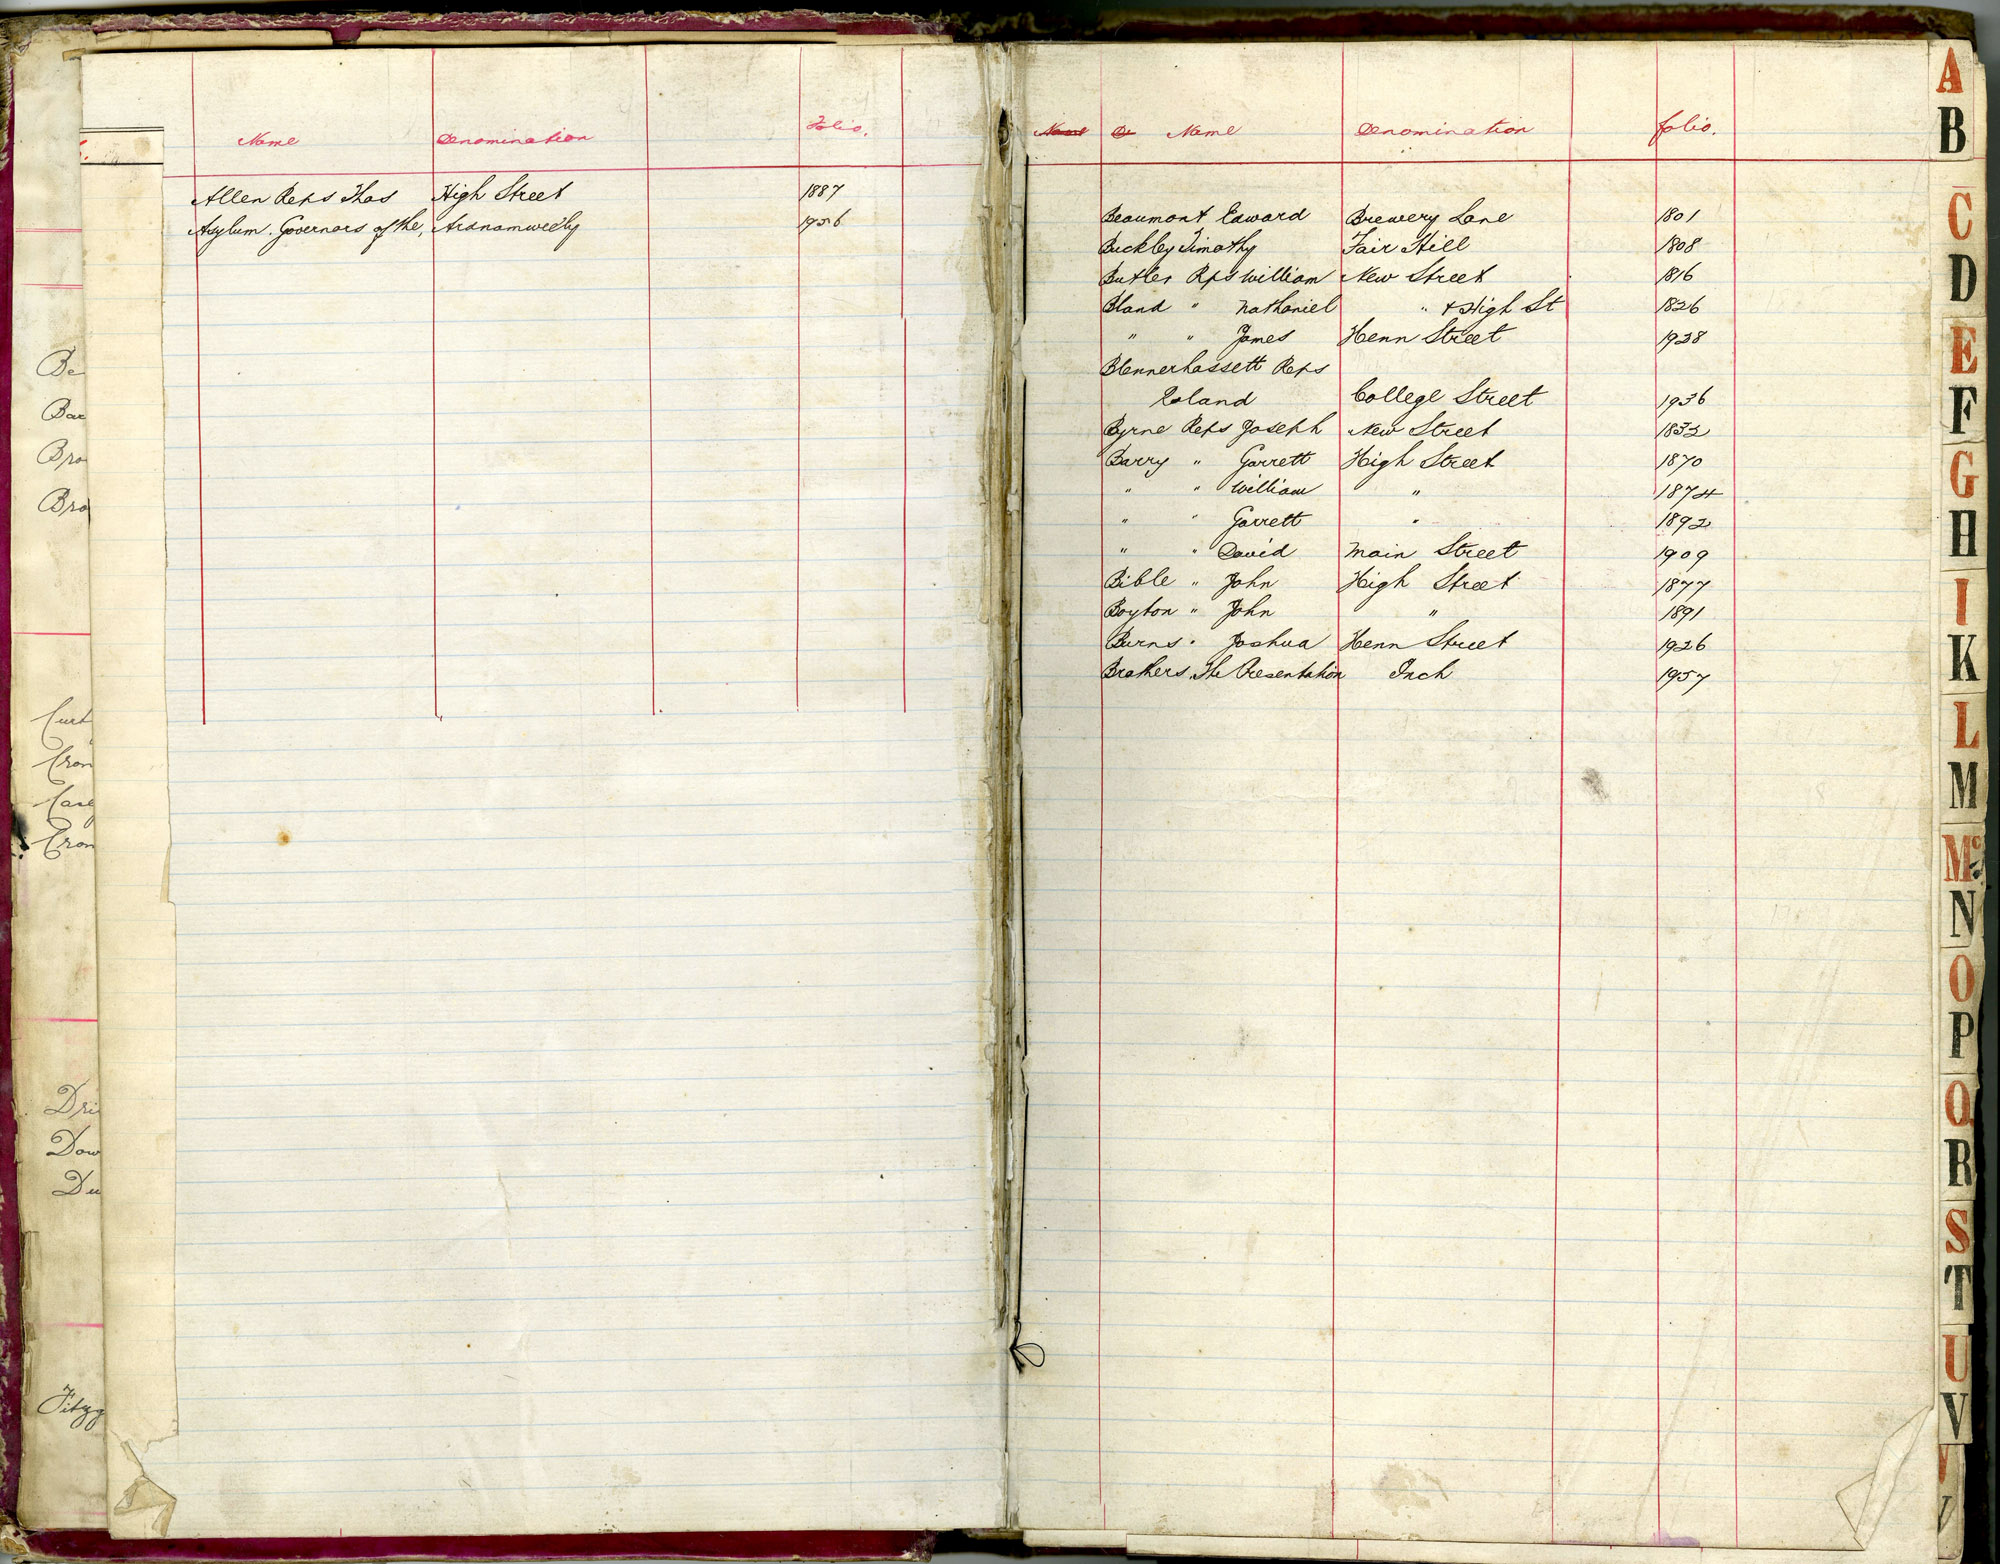 Name Denomination Folio.
Allen Reps Thos High Street 1887
Asylum. Governors of the, Ardnamweely 1956
Name De Name Denomination folio.
Beaumont Edward Brewery Lane 1801
Buckley Timothy Fair Hill 1808
Butler Reps William New Street 1816
Bland " Nathaniel " & High St 1826
" " James Henn Street 1938
Blennerhassett Reps
Roland College Street 1936
Byrne Reps Joseph New Street 1832
Barry " Garrett High Street 1870
" " William " 1874
" " Garrett " 1892
" " David Main Street 1909
Bible " John High Street 1877
Boyton " John " 1891
Burns " Joshua Henn Street 1926
Brothers. The Presentation Inch 1957
Be
Bar
Bro
Bro
Curt
Cron
Case
Cron
Dri
Dow
Du
Fitzg
A
B
C
D
E
F
G
H
I
K
L
M
Mc
N
O
P
Q
R
S
T
U
V
V